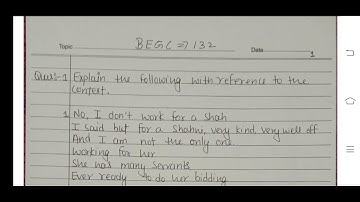 Topic BEGC ⇒ 132 Date
1
Ques:-1 Explain the following with reference to the
context.
1 No, I don't work for a Shah
I said but for a Shahni, very kind, very well off
And I am not the only one
Working for her
She has many servants
Ever ready to do her bidding